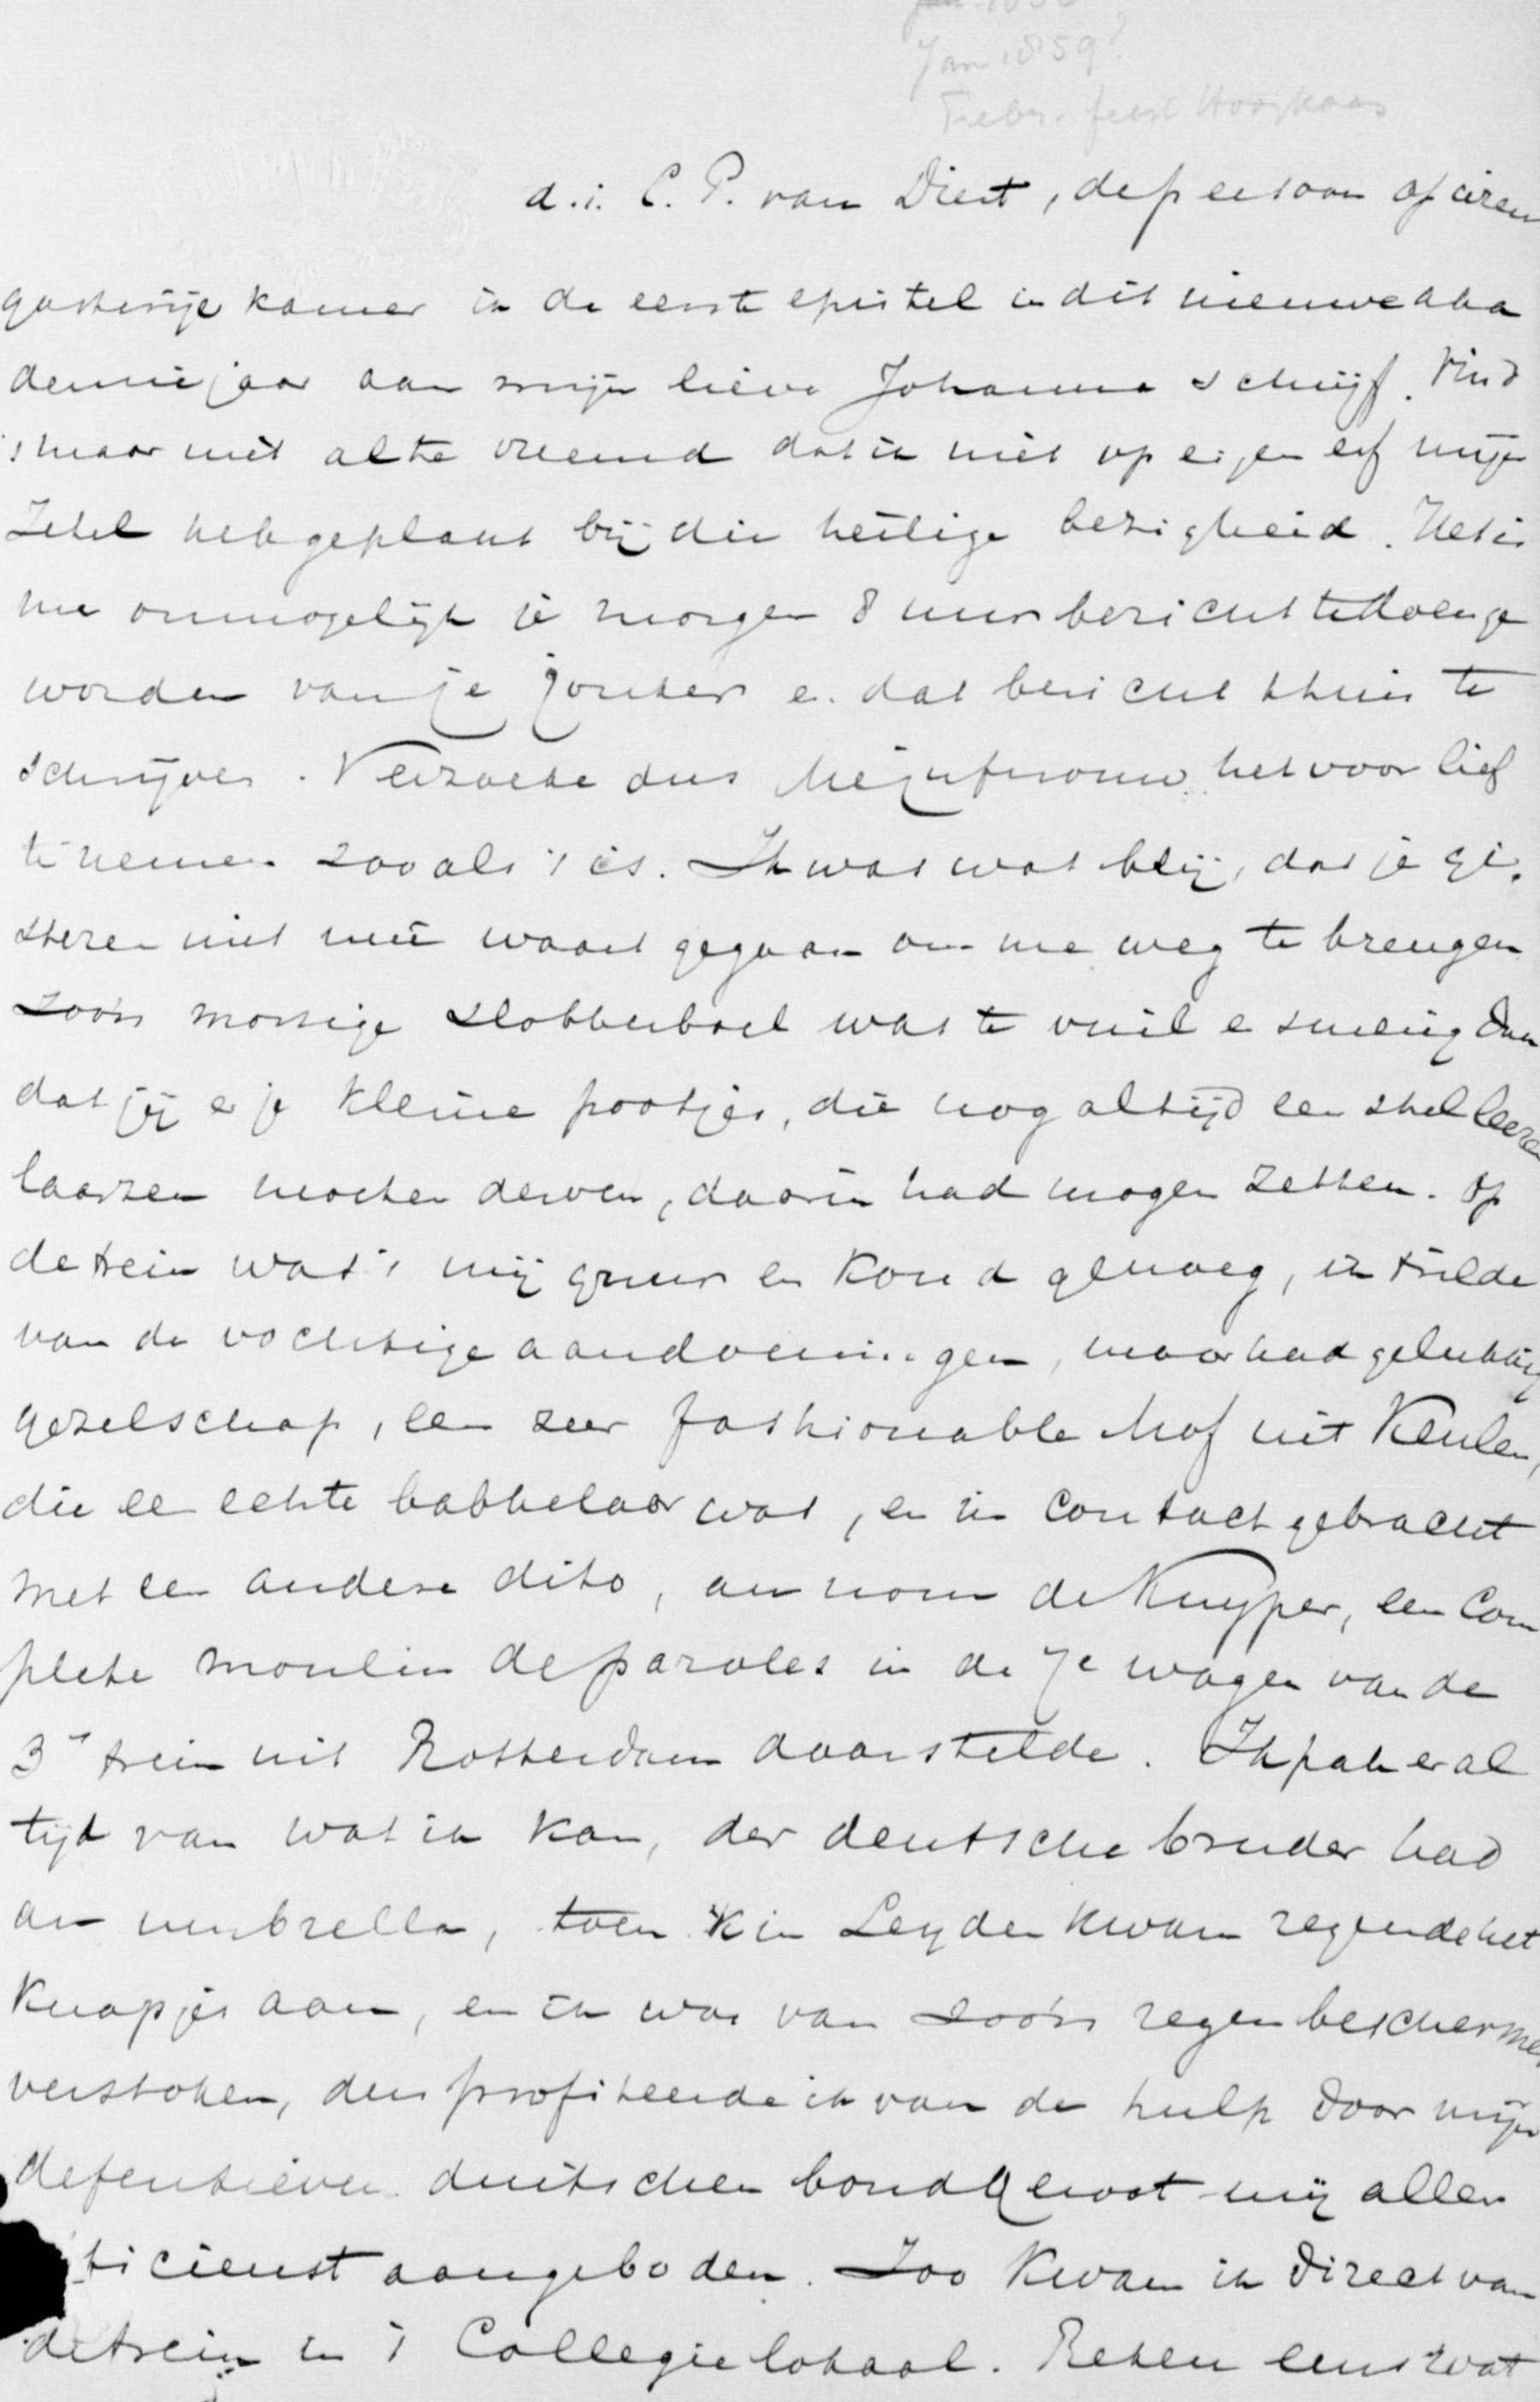 Jan 1859?
Febr. feest
d.i. C. P. van Diest, de persoon op wiens
gastvrije kamer ik de eerste epistel in dit nieuwe aka
demiejaar aan mijn lieve Johanna schrijf. Vind
't maar niet al te vreemd dat ik niet op eigen erf mijn
Zetel heb geplant bij die heilige bezigheid. Het is
me onmogelijk je morgen 8 uur bericht te doen ge
worden van je jonker en dat bericht thuis te
schrijven. Verzoeke dus Mejufvrouw het voor lief
te nemen zooals 't is. Ik was wat blij, dat je gi-
steren niet meê waart gegaan om me weg te brengen
zoo'n morsige slobberboel was te vuil en smerig dan
dat jij er je kleine pootjes, die nog altijd een stel leeren
laarzen moeten derven, daarin had mogen zetten. Op
de trein was 't mij guur en koud genoeg, ik trilde
van de vochtige aandoeningen, maar had gelukkig
gezelschap, een zeer fashionable Mof uit Keulen,
die een echte babbelaar was, en in contact gebracht
met een andere dito, en nom de Kuyper, een com
plete moulin de paroles in de 7e wagen van de
3e trein uit Rotterdam daarstelde. Ik pak er al
tijd van wat ik kan, der deutsche bruder had
an umbrella, toen 'k in Leyden kwam regende het
knapjes aan, en ik was van zoo'n regenbeschermer
verstoken, dus profiteerde ik van de hulp door mijn
defensieven duitschen bondgenoot mij aller
ficienst aangeboden. Zoo kwam ik direct van
de trein in 't Collegielokaal. Reken eens wat